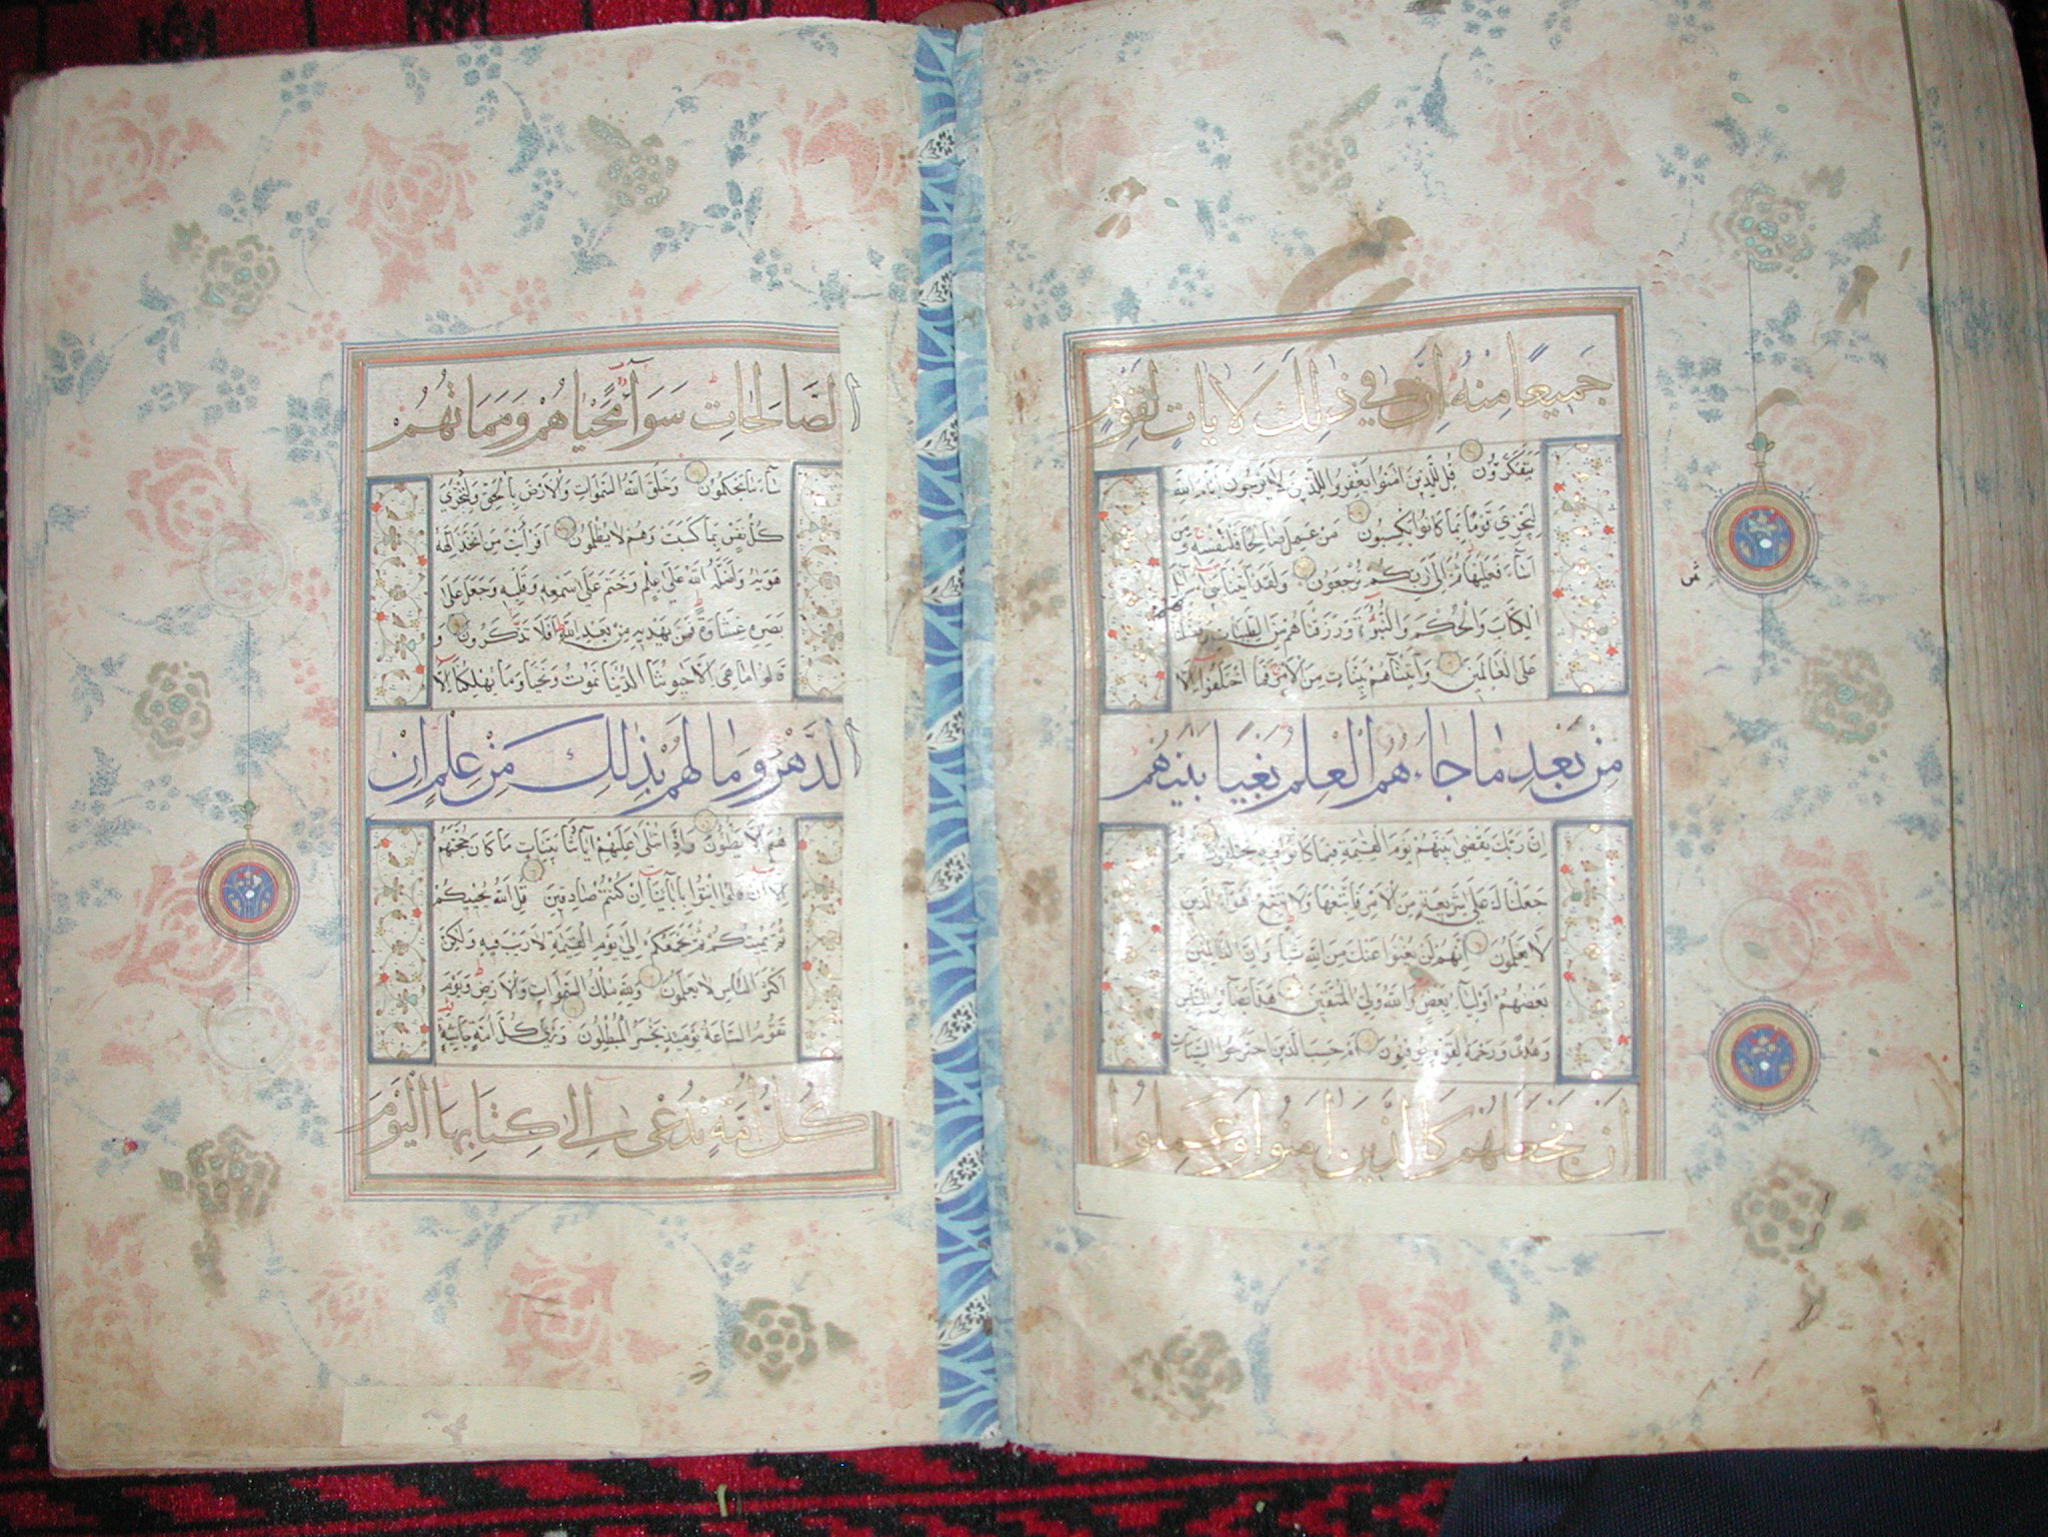 جَمِيعًا مِنْهُ اِنَّ فِي ذٰلِكَ لَاٰيَاتٍ لِقَوْمٍ
يَتَفَكَّرُونَ قُل لِّلَّذِينَ اٰمَنُوا يَغْفِرُوا لِلَّذِينَ لَا يَرْجُونَ اَيَّامَ اللّٰهِ
لِيَجْزِيَ قَوْمًا بِمَا كَانُوا يَكْسِبُونَ مَنْ عَمِلَ صَالِحًا فَلِنَفْسِهِ وَمَنْ
اَسَآءَ فَعَلَيْهَا ثُمَّ اِلٰى رَبِّكُمْ تُرْجَعُونَ وَلَقَدْ اٰتَيْنَا بَنِي اِسْرَآئِلَ
الْكِتَابَ وَالْحُكْمَ وَالنُّبُوَّةَ وَرَزَقْنَاهُمْ مِنَ الطَّيِّبَاتِ
عَلَى الْعَالَمِينَ وَاٰتَيْنَاهُمْ بَيِّنَاتٍ مِنَ الْاَمْرِ فَمَا اخْتَلَفُوا اِلَّا
مِنْ بَعْدِ مَا جَاءَهُمُ الْعِلْمُ بَغْيًا بَيْنَهُمْ
اِنَّ رَبَّكَ يَقْضِي بَيْنَهُمْ يَوْمَ الْقِيٰمَةِ فِيمَا كَانُوا فِيهِ يَخْتَلِفُونَ
جَعَلْنَاكَ عَلٰى شَرِيعَةٍ مِنَ الْاَمْرِ فَاتَّبِعْهَا وَلَا تَتَّبِعْ اَهْوَآءَ الَّذِينَ
لَا يَعْلَمُونَ اِنَّهُمْ لَنْ يُغْنُوا عَنْكَ مِنَ اللّٰهِ شَيْئًا وَاِنَّ الظَّالِمِينَ
بَعْضُهُمْ اَوْلِيَآءُ بَعْضٍ وَاللّٰهُ وَلِيُّ الْمُتَّقِينَ هٰذَا بَصَآئِرُ لِلنَّاسِ
وَهُدًى وَرَحْمَةٌ لِقَوْمٍ يُوقِنُونَ اَمْ حَسِبَ الَّذِينَ اجْتَرَحُوا السَّيِّئَاتِ
اَنْ نَجْعَلَهُمْ كَالَّذِينَ اٰمَنُوا وَعَمِلُوا
الصَّالِحَاتِ سَوَآءً مَحْيَاهُمْ وَمَمَاتُهُمْ
سَآءَ مَا يَحْكُمُونَ وَخَلَقَ اللّٰهُ السَّمٰوَاتِ وَالْاَرْضَ بِالْحَقِّ وَلِتُجْزٰى
كُلُّ نَفْسٍ بِمَا كَسَبَتْ وَهُمْ لَا يُظْلَمُونَ اَفَرَاَيْتَ مَنِ اتَّخَذَ اِلٰهَهُ
هَوٰيهُ وَاَضَلَّهُ اللّٰهُ عَلٰى عِلْمٍ وَخَتَمَ عَلٰى سَمْعِهِ وَقَلْبِهِ وَجَعَلَ عَلٰى
بَصَرِهِ غِشَاوَةً فَمَنْ يَهْدِيهِ مِنْ بَعْدِ اللّٰهِ اَفَلَا تَذَكَّرُونَ وَ
قَالُوا مَا هِيَ اِلَّا حَيٰوتُنَا الدُّنْيَا نَمُوتُ وَنَحْيَا وَمَا يُهْلِكُنَا اِلَّا
الدَّهْرُ وَمَا لَهُمْ بِذٰلِكَ مِنْ عِلْمٍ اِنْ
هُمْ اِلَّا يَظُنُّونَ وَاِذَا تُتْلٰى عَلَيْهِمْ اٰيَاتُنَا بَيِّنَاتٍ مَا كَانَ حُجَّتَهُمْ
اِلَّا اَنْ قَالُوا ائْتُوا بِاٰبَآئِنَا اِنْ كُنْتُمْ صَادِقِينَ قُلِ اللّٰهُ يُحْيِيكُمْ
ثُمَّ يُمِيتُكُمْ ثُمَّ يَجْمَعُكُمْ اِلٰى يَوْمِ الْقِيٰمَةِ لَا رَيْبَ فِيهِ وَلٰكِنَّ
اَكْثَرَ النَّاسِ لَا يَعْلَمُونَ وَلِلّٰهِ مُلْكُ السَّمٰوَاتِ وَالْاَرْضِ وَيَوْمَ
تَقُومُ السَّاعَةُ يَوْمَئِذٍ يَخْسَرُ الْمُبْطِلُونَ وَتَرٰى كُلَّ اُمَّةٍ جَاثِيَةً
كُلُّ اُمَّةٍ تُدْعٰى اِلٰى كِتَابِهَا الْيَوْمَ